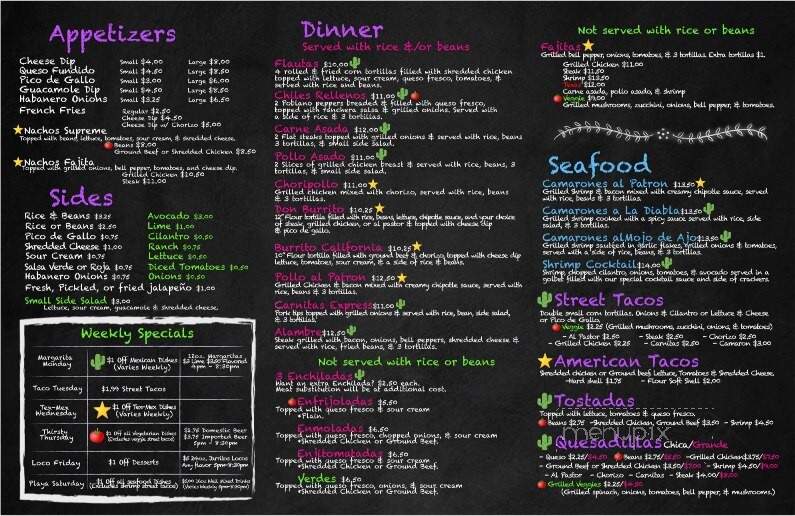 Appetizers
Cheese Dip Small $4.00 Large $8.00
Queso Fundido Small $4.50 Large $8.50
Pico de Gallo Small $3.00 Large $6.00
Guacamole Dip Small $4.50 Large $8.50
Habanero Onions Small $3.25 Large $6.50
French Fries Regular $2.50
Cheese Dip $4.50
Cheese Dip w/ Chorizo $5.00
Nachos Supreme
Topped with beans, lettuce, tomatoes, sour cream, & shredded cheese.
Beans $8.00
Ground Beef or Shredded Chicken $8.50
Nachos Fajita
Topped with grilled onions, bell pepper, tomatoes, and cheese dip.
Grilled Chicken $10.50
Steak $11.00
Sides
Rice & Beans $3.25
Rice or Beans $2.50
Pico de Gallo $0.75
Shredded Cheese $1.00
Sour Cream $0.75
Salsa Verde or Roja $0.75
Habanero Onions $0.75
Avocado $3.00
Lime $1.00
Cilantro $0.50
Ranch $0.75
Lettuce $0.50
Diced Tomatoes $0.50
Onions $0.50
Fresh, Pickled, or fried jalapeño $1.00
Small Side Salad $3.00
Lettuce, sour cream, guacamole & shredded cheese.
Weekly Specials
Margarita Monday
$1 Off Mexican Dishes
(Varies Weekly)
12oz. Margaritas
4pm - 8:30pm
Taco Tuesday
$1.99 Street Tacos
Tex-Mex Wednesday
$1 Off Tex-Mex Dishes
(Varies Weekly)
Thirsty Thursday
$1 Off all Vegetarian Dishes
(Excludes veggie street tacos)
$2.75 Domestic Beer
$3.75 Imported Beer
5pm - 8:30pm
Loco Friday
$1 Off Desserts
Any Flavor 5pm-8:30pm
Playa Saturday
$1.00 Off all seafood Dishes
(Excludes shrimp street tacos)
(Varies Weekly 5pm-8:30pm)
Dinner
Served with rice &/or beans
Flautas $10.00
4 rolled & fried corn tortillas filled with shredded chicken
topped with lettuce, sour cream, queso fresco, tomatoes, &
served with rice and beans.
Chiles Rellenos $11.00
2 Poblano peppers breaded & filled with queso fresco,
topped with ranchera salsa & grilled onions. Served with
a side of rice & 3 tortillas.
Carne Asada $12.00
2 Flat steaks topped with grilled onions & served with rice, beans
3 tortillas, & small side salad.
Pollo Asado $11.00
2 Slices of grilled chicken breast & served with rice, beans, 3
tortillas, & small side salad.
Choripollo $11.00
Grilled chicken mixed with chorizo, served with rice, beans
& 3 tortillas.
Don Burrito $10.25
12" Flour tortilla filled with rice, beans, lettuce, chipotle sauce, and your choice
of steak, grilled chicken, or al pastor & topped with cheese dip
& pico de gallo.
Burrito California $10.25
10" Flour tortilla filled with ground beef & chorizo, topped with cheese dip
lettuce, tomatoes, sour cream, & a side of rice & beans.
Pollo al Patron $12.50
Grilled Chicken & bacon mixed with creamy chipotle sauce, served with
rice, beans & 3 tortillas.
Carnitas Express $11.00
Pork tips topped with grilled onions & served with rice, bean, side salad,
& 3 tortillas.
Alambre $12.50
Steak grilled with bacon, onions, bell peppers, shredded cheese &
served with rice, fried beans, & 3 tortillas.
Not served with rice or beans
3 Enchiladas
Want an extra Enchilada? $2.50 each.
Meat substitution will be at additional cost.
Enfrijoladas $5.50
Topped with queso fresco & sour cream
*Plain.
Enmoladas $6.50
Topped with queso fresco, chopped onions, & sour cream
*Shredded Chicken or Ground Beef.
Enjitomatadas $6.50
Topped with queso fresco & sour cream
*Shredded Chicken or Ground Beef.
Verdes $6.50
Topped with queso fresco, onions, & sour cream
*Shredded Chicken or Ground Beef.
Not served with rice or beans
Fajitas
Grilled bell pepper, onions, tomatoes, & 3 tortillas. Extra tortillas $1.
Grilled Chicken $11.00
Steak $11.50
Shrimp $13.50
Texas $12.00
Carne asada, pollo asado, & shrimp
Veggie $9.00
Grilled mushrooms, zucchini, onions, bell pepper, & tomatoes.
Seafood
Camarones al Patron $13.50
Grilled Shrimp & bacon mixed with creamy chipotle sauce, served
with rice, beans & 3 tortillas.
Camarones a La Diabla $13.50
Grilled shrimp cooked with a spicy sauce, served with rice, side
salad, & 3 tortillas.
Camarones al Mojo de Ajo $13.50
Grilled shrimp sauteed in garlic flakes, grilled onions & tomatoes,
served with a side of rice & beans.
Shrimp Cocktail $14.00
Shrimp, chopped cilantro, onions, tomatoes, & avocado served in a
goblet filled with our special cocktail sauce and side of crackers.
Street Tacos
Double small corn tortillas. Onions & Cilantro or Lettuce & Cheese
or Pico de Gallo.
Veggie $2.25 (Grilled mushrooms, zucchini, onions, & tomatoes)
- Al Pastor $2.50 - Steak $2.50 - Chorizo $2.50
- Grilled Chicken $2.50 - Carnitas $2.50 - Camaron $3.00
American Tacos
Shredded chicken or Ground beef, Lettuce, Tomatoes & Shredded Cheese.
-Hard shell $1.75 - Flour Soft Shell $2.00
Tostadas
Topped with lettuce, tomatoes & queso fresco.
Beans $2.75 -Shredded Chicken, Ground Beef $3.50 - Shrimp $4.50
menupix
Quesadillas Chica/Grande
- Queso $2.25/$4.50 Beans $2.75/$5.50 -Grilled Chicken $3.75/$7.50
- Ground Beef or Shredded Chicken $3.50/$7.00 - Shrimp $4.50/$9.00
- Al Pastor - Chorizo - Carnitas - Steak $4.00/$8.00
Grilled Veggies $2.25/$4.50
(Grilled spinach, onions, tomatoes, bell pepper, & mushrooms.)